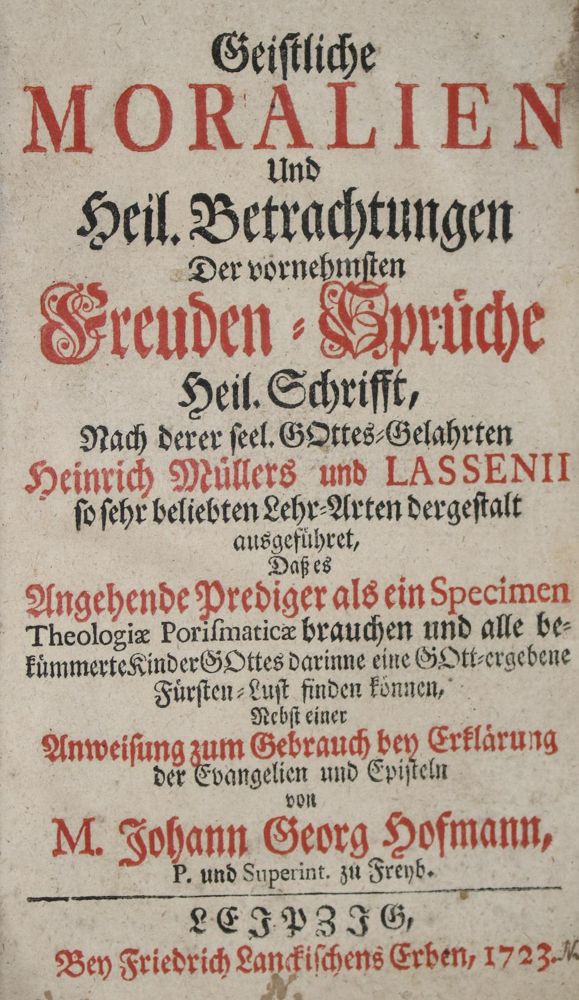 Geistliche
MORALIEN
Und
Heil. Betrachtungen
Der vornehmsten
Freuden-Sprüche
Heil. Schrifft,
Nach derer seel. GOttes-Gelahrten
Heinrich Müllers und LASSENII
so sehr beliebten Lehr-Arten dergestalt
ausgeführet,
Daß es
Angehende Prediger als ein Specimen
Theologiæ Porismaticæ brauchen und alle be-
kümmerte Kinder GOttes darinne eine GOtt-ergebene
Fürsten-Lust finden können,
Nebst einer
Anweisung zum Gebrauch bey Erklärung
der Evangelien und Episteln
von
M. Johann Georg Hofmann,
P. und Superint. zu Freyb.
LEIPZIG,
Bey Friedrich Lanckischens Erben, 1723.